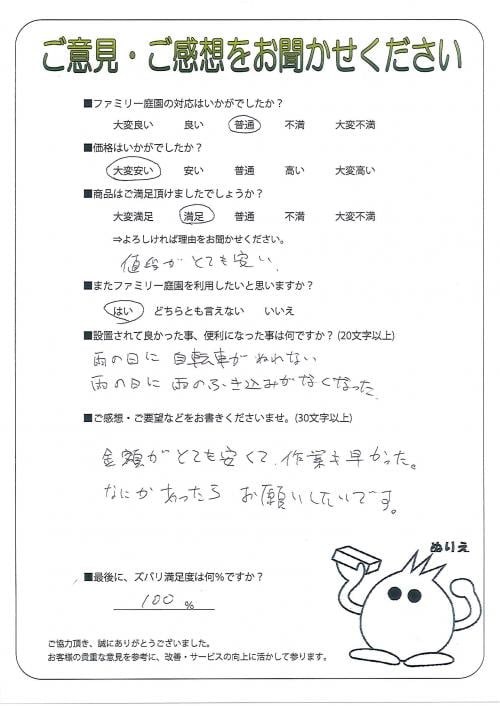 ご意見・ご感想をお聞かせください
■ファミリー庭園の対応はいかがでしたか？
大変良い 良い 普通 不満 大変不満
■価格はいかがでしたか？
大変安い 安い 普通 高い 大変高い
■商品はご満足頂けましたでしょうか？
大変満足 満足 普通 不満 大変不満
⇒よろしければ理由をお聞かせください。
値段がとても安い.
■またファミリー庭園を利用したいと思いますか？
はい どちらとも言えない いいえ
■設置されて良かった事、便利になった事は何ですか？(20文字以上)
雨の日に 自転車がぬれない
雨の日に 雨のふき込みがなくなった.
■ご感想・ご要望などをお書きくださいませ。(30文字以上)
金額がとても安くて、作業も早かった。
なにかあったら お願いしたいです。
ぬりえ
■最後に、ズバリ満足度は何％ですか？
100 %
ご協力頂き、誠にありがとうございました。
お客様の貴重な意見を参考に、改善・サービスの向上に活かして参ります。